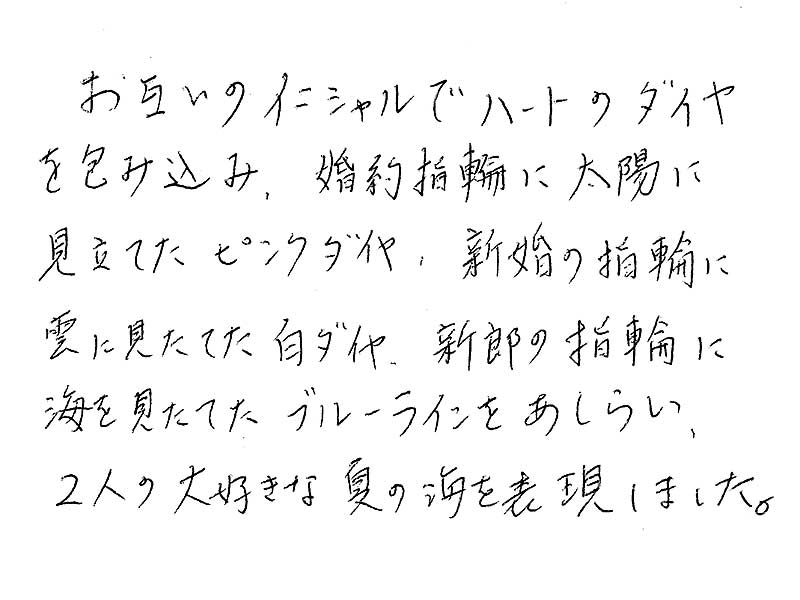 お互いのイニシャルでハートのダイヤ
を包み込み、婚約指輪に太陽に
見立てたピンクダイヤ、新婚の指輪に
雲に見たてた白ダイヤ、新郎の指輪に
海を見たてたブルーラインをあしらい、
2人の大好きな夏の海を表現しました。